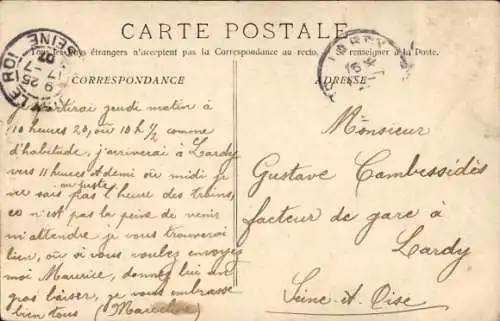 CARTE POSTALE
Tous les Pays étrangers n'acceptent pas la Correspondance au recto. Se renseigner à la Poste.
CORRESPONDANCE
ADRESSE
Je partirai jeudi matin à
10 heures 20, ou 10 h 1/2 comme
d'habitude, j'arriverai à Lardy
vers 11 heures et demi ou midi je
ne sais pas au juste l'heure des trains,
ce n'est pas la peine de venir
m'attendre je vous trouverai
bien, ou si vous voulez envoyez
moi Maurice, donnez lui un
gros baiser, je vous embrasse
bien tous
Monsieur
Gustave Cambessédès
facteur de gare à
Lardy
Seine-et-Oise
LE ROI
SEINE